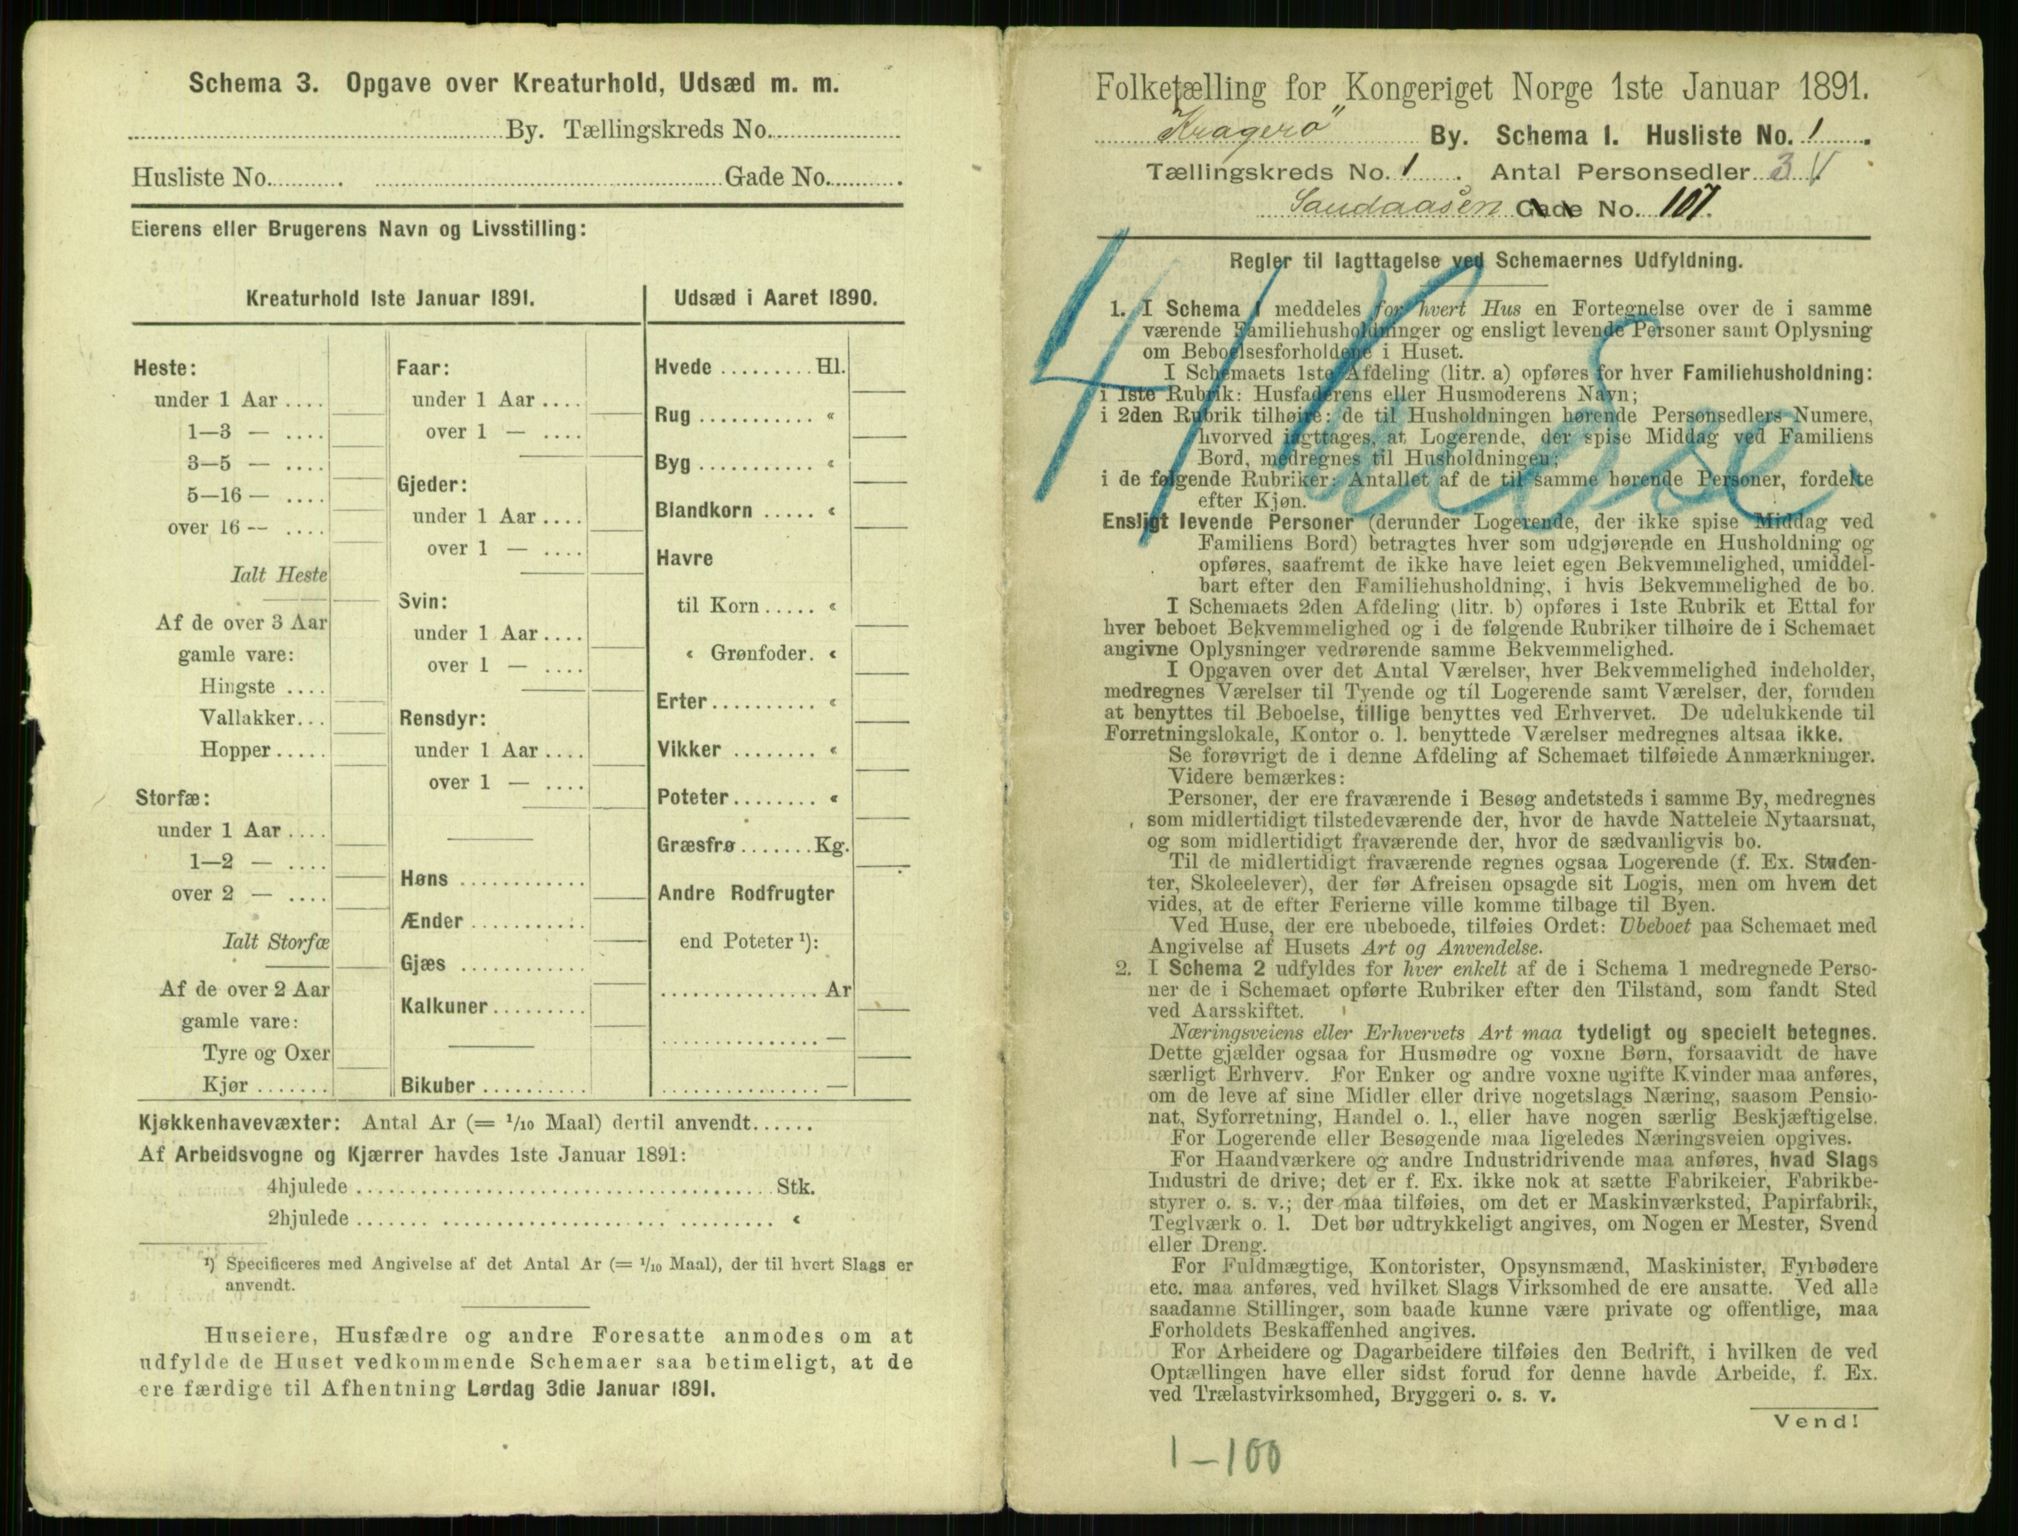 Schema 3. Opgave over Kreaturhold, Udsæd m. m.
By. Tællingskreds No.
Husliste No. Gade No.
Eierens eller Brugerens Navn og Livsstilling:
Kreaturhold 1ste Januar 1891.
Heste:
under 1 Aar ....
1—3 — ....
3—5 — ....
5—16 — ....
over 16 — ....
Ialt Heste
Af de over 3 Aar
gamle vare:
Hingste ....
Vallakker...
Hopper .....
Storfæ:
under 1 Aar ....
1—2 — ....
over 2 — ....
Ialt Storfæ
Af de over 2 Aar
gamle vare:
Tyre og Oxer
Kjør .......
Faar:
under 1 Aar ....
over 1 — ....
Gjeder:
under 1 Aar ....
over 1 — ....
Svin:
under 1 Aar ....
over 1 — ....
Rensdyr:
under 1 Aar ....
over 1 — ....
Høns ............
Ænder ...........
Gjæs ............
Kalkuner.........
Bikuber ..........
Udsæd i Aaret 1890.
Hvede ......... Hl.
Rug ........... «
Byg ........... «
Blandkorn ..... «
Havre
til Korn ..... «
« Grønfoder. «
Erter.......... «
Vikker ........ «
Poteter........ «
Græsfrø ....... Kg.
Andre Rodfrugter
end Poteter ¹):
............... Ar
............... —
............... —
Kjøkkenhavevæxter: Antal Ar (= 1/10 Maal) dertil anvendt......
Af Arbeidsvogne og Kjærrer havdes 1ste Januar 1891:
4hjulede ........................................ Stk.
2hjulede ........................................ «
¹) Specificeres med Angivelse af det Antal Ar (= 1/10 Maal), der til hvert Slags er
anvendt.
Huseiere, Husfædre og andre Foresatte anmodes om at
udfylde de Huset vedkommende Schemaer saa betimeligt, at de
ere færdige til Afhentning Lørdag 3die Januar 1891.
Folketælling for Kongeriget Norge 1ste Januar 1891.
"Kragerø" By. Schema I. Husliste No. 1
Tællingskreds No. 1. Antal Personsedler 3
Saudaasen Gade No. 107.
Regler til Iagttagelse ved Schemaernes Udfyldning.
1. I Schema 1 meddeles for hvert Hus en Fortegnelse over de i samme
værende Familiehusholdninger og ensligt levende Personer samt Oplysning
om Beboelsesforholdene i Huset.
I Schemaets 1ste Afdeling (litr. a) opføres for hver Familiehusholdning:
i 1ste Rubrik: Husfaderens eller Husmoderens Navn;
i 2den Rubrik tilhøire: de til Husholdningen hørende Personsedlers Numere,
hvorved iagttages, at Logerende, der spise Middag ved Familiens
Bord, medregnes til Husholdningen;
i de følgende Rubriker: Antallet af de til samme hørende Personer, fordelte
efter Kjøn.
Ensligt levende Personer (derunder Logerende, der ikke spise Middag ved
Familiens Bord) betragtes hver som udgjørende en Husholdning og
opføres, saafremt de ikke have leiet egen Bekvemmelighed, umiddel-
bart efter den Familiehusholdning, i hvis Bekvemmelighed de bo.
I Schemaets 2den Afdeling (litr. b) opføres i 1ste Rubrik et Ettal for
hver beboet Bekvemmelighed og i de følgende Rubriker tilhøire de i Schemaet
angivne Oplysninger vedrørende samme Bekvemmelighed.
I Opgaven over det Antal Værelser, hver Bekvemmelighed indeholder,
medregnes Værelser til Tyende og til Logerende samt Værelser, der, foruden
at benyttes til Beboelse, tillige benyttes ved Erhvervet. De udelukkende til
Forretningslokale, Kontor o. l. benyttede Værelser medregnes altsaa ikke.
Se forøvrigt de i denne Afdeling af Schemaet tilføiede Anmærkninger.
Videre bemærkes:
Personer, der ere fraværende i Besøg andetsteds i samme By, medregnes
som midlertidigt tilstedeværende der, hvor de havde Natteleie Nytaarsnat,
og som midlertidigt fraværende der, hvor de sædvanligvis bo.
Til de midlertidigt fraværende regnes ogsaa Logerende (f. Ex. Studen-
ter, Skoleelever), der før Afreisen opsagde sit Logis, men om hvem det
vides, at de efter Ferierne ville komme tilbage til Byen.
Ved Huse, der ere ubeboede, tilføies Ordet: Ubeboet paa Schemaet med
Angivelse af Husets Art og Anvendelse.
2. I Schema 2 udfyldes for hver enkelt af de i Schema 1 medregnede Perso-
ner de i Schemaet opførte Rubriker efter den Tilstand, som fandt Sted
ved Aarsskiftet.
Næringsveiens eller Erhvervets Art maa tydeligt og specielt betegnes.
Dette gjælder ogsaa for Husmødre og voxne Børn, forsaavidt de have
særligt Erhverv. For Enker og andre voxne ugifte Kvinder maa anføres,
om de leve af sine Midler eller drive nogetslags Næring, saasom Pensio-
nat, Syforretning, Handel o. l., eller have nogen særlig Beskjæftigelse.
For Logerende eller Besøgende maa ligeledes Næringsveien opgives.
For Haandværkere og andre Industridrivende maa anføres, hvad Slags
Industri de drive; det er f. Ex. ikke nok at sætte Fabrikeier, Fabrikbe-
styrer o. s. v.; der maa tilføies, om det er Maskinværksted, Papirfabrik,
Teglværk o. l. Det bør udtrykkeligt angives, om Nogen er Mester, Svend
eller Dreng.
For Fuldmægtige, Kontorister, Opsynsmænd, Maskinister, Fyrbødere
etc. maa anføres, ved hvilket Slags Virksomhed de ere ansatte. Ved alle
saadanne Stillinger, som baade kunne være private og offentlige, maa
Forholdets Beskaffenhed angives.
For Arbeidere og Dagarbeidere tilføies den Bedrift, i hvilken de ved
Optællingen have eller sidst forud for denne havde Arbeide, f. Ex.
ved Trælastvirksomhed, Bryggeri o. s. v.
Vend!
1-100